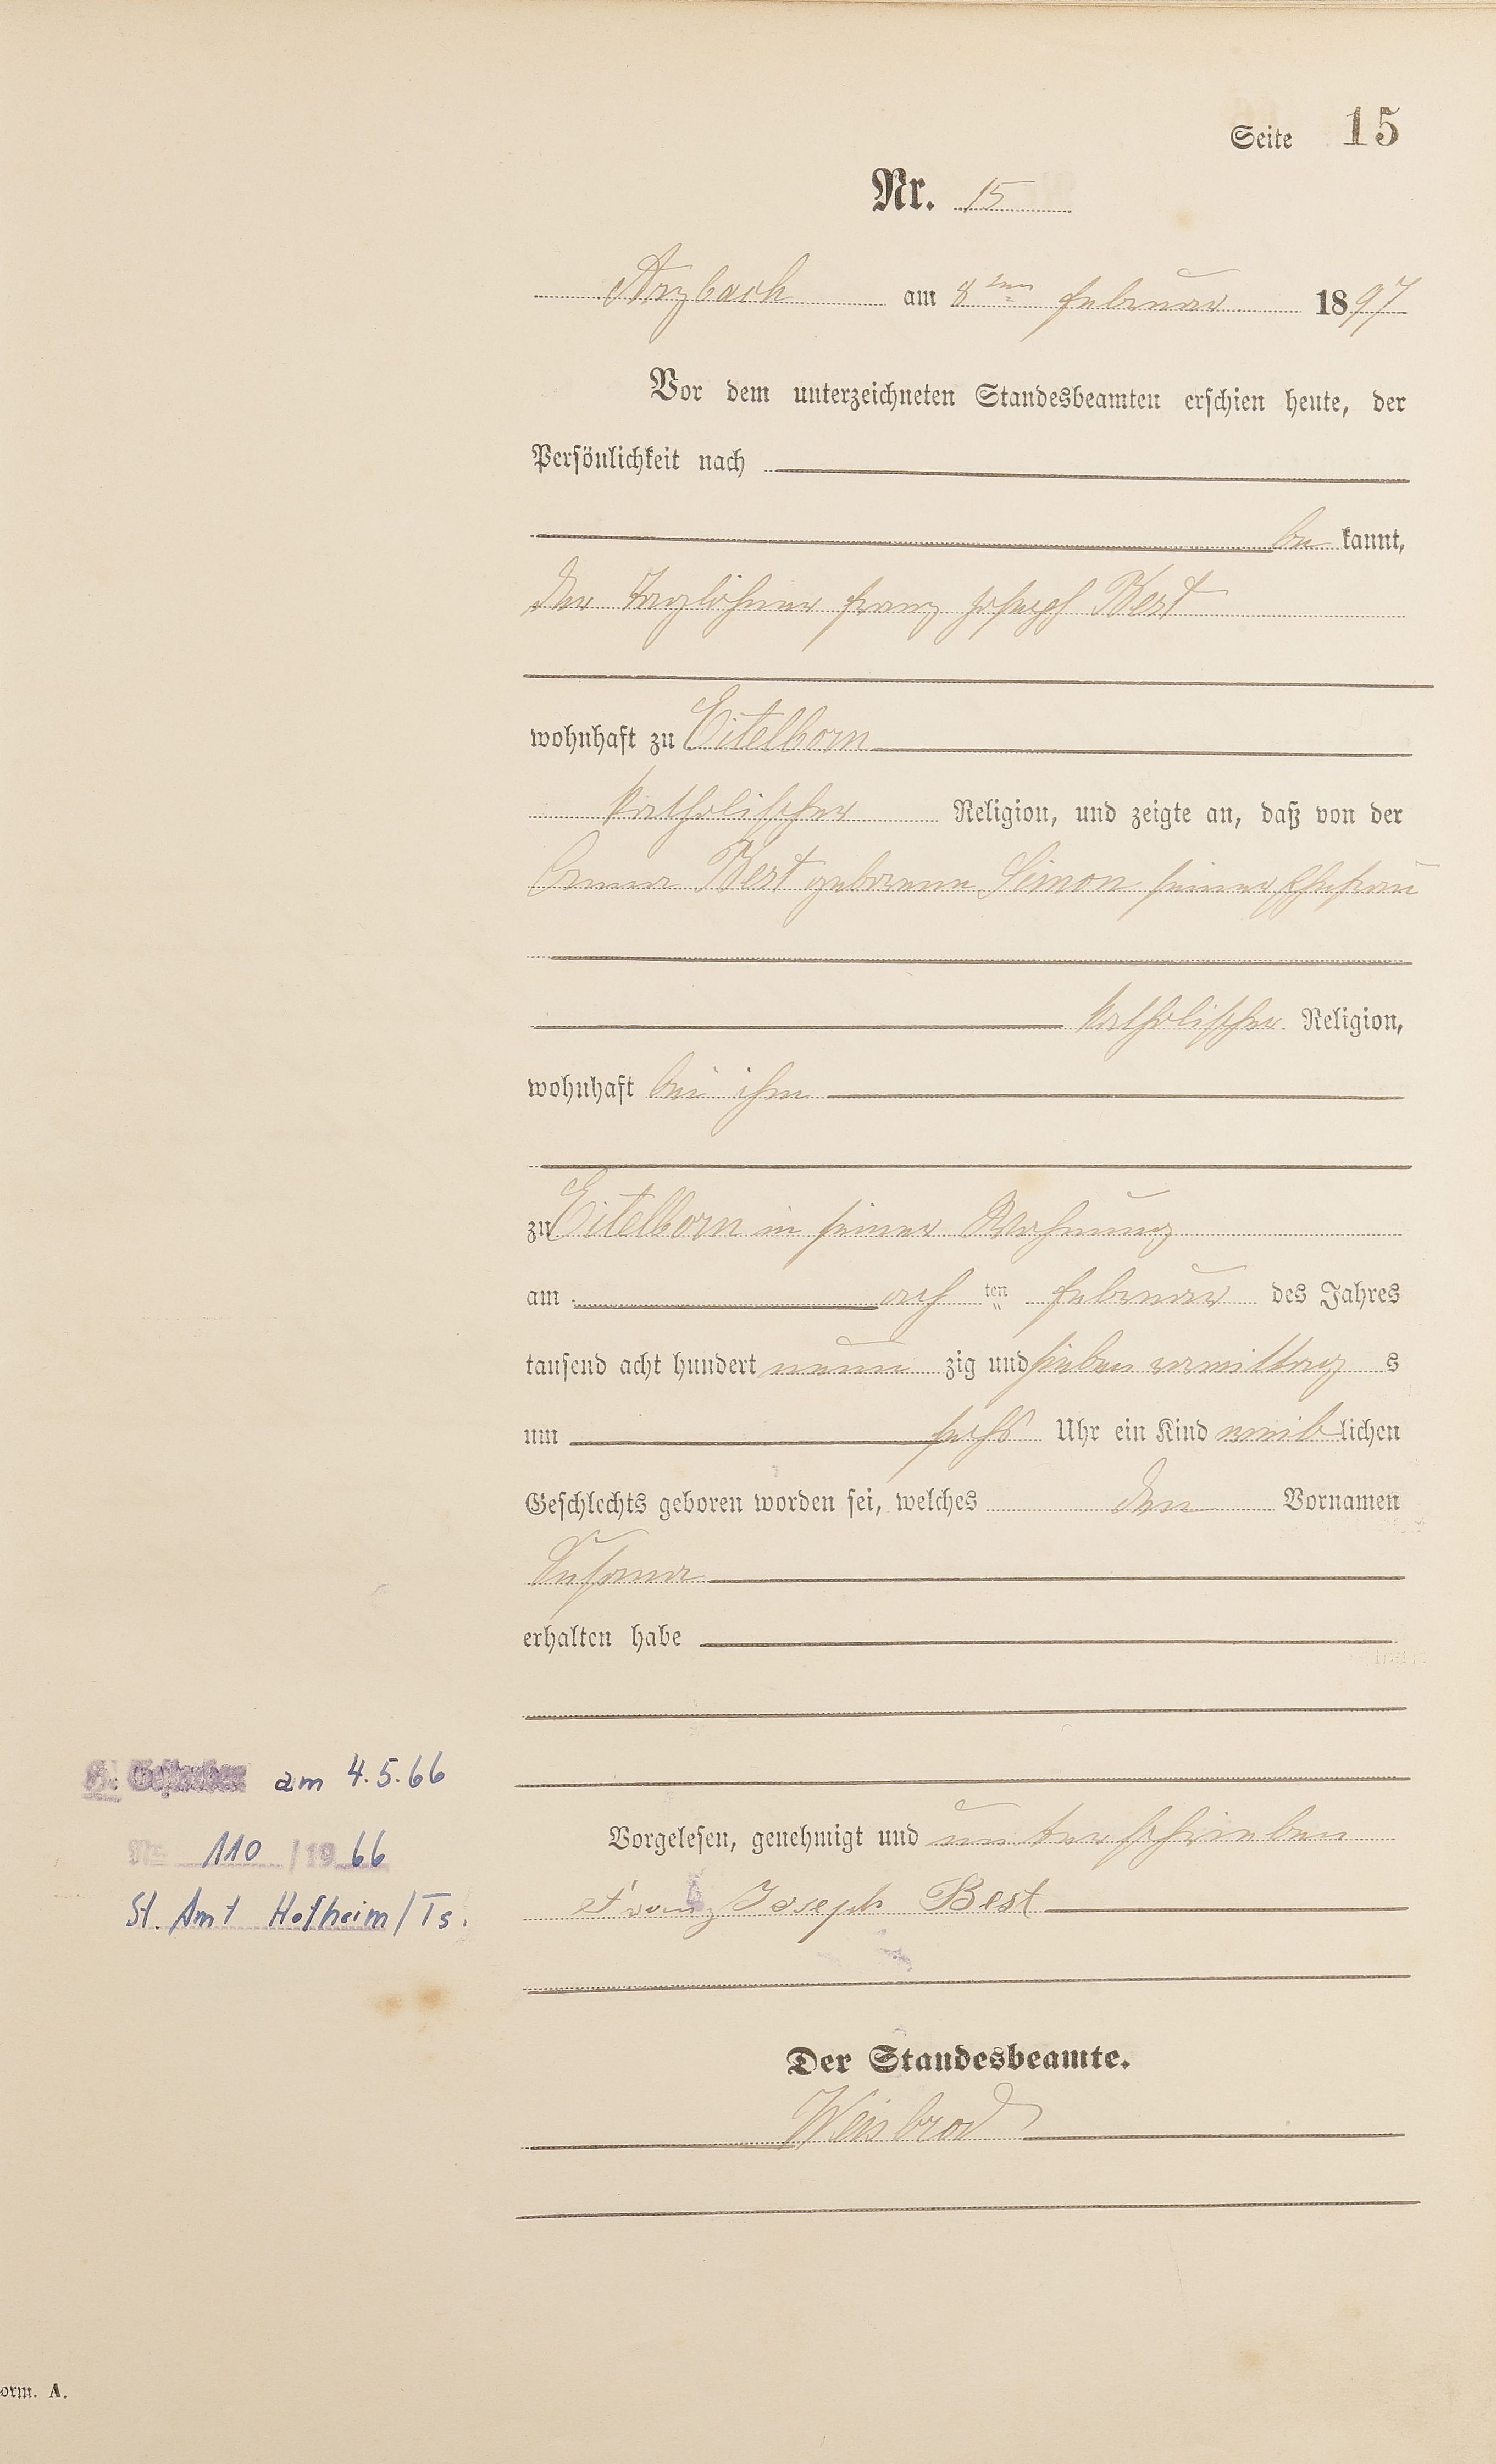 Seite 15
Nr. 15
Arzbach am 8ten Februar 1897
Vor dem unterzeichneten Standesbeamten erschien heute, der
Persönlichkeit nach
be kannt,
der Taglöhner Franz Joseph Best
wohnhaft zu Eitelborn
katholischer Religion, und zeigte an, daß von der
Anna Best geborene Simon seiner Ehefrau
katholischer Religion,
wohnhaft bei ihm
zu Eitelborn in seiner Wohnung
am acht ten Februar des Jahres
tausend acht hundert neun zig und sieben vormittag s
um sechs Uhr ein Kind weib lichen
Geschlechts geboren worden sei, welches den Vornamen
Susanna
erhalten habe
Gestorben am 4.5.66
Nr. 110 / 1966
St. Amt Hofheim/Ts.
Vorgelesen, genehmigt und unterschrieben
Franz Joseph Best
Der Standesbeamte.
Weisbrod
orm. A.